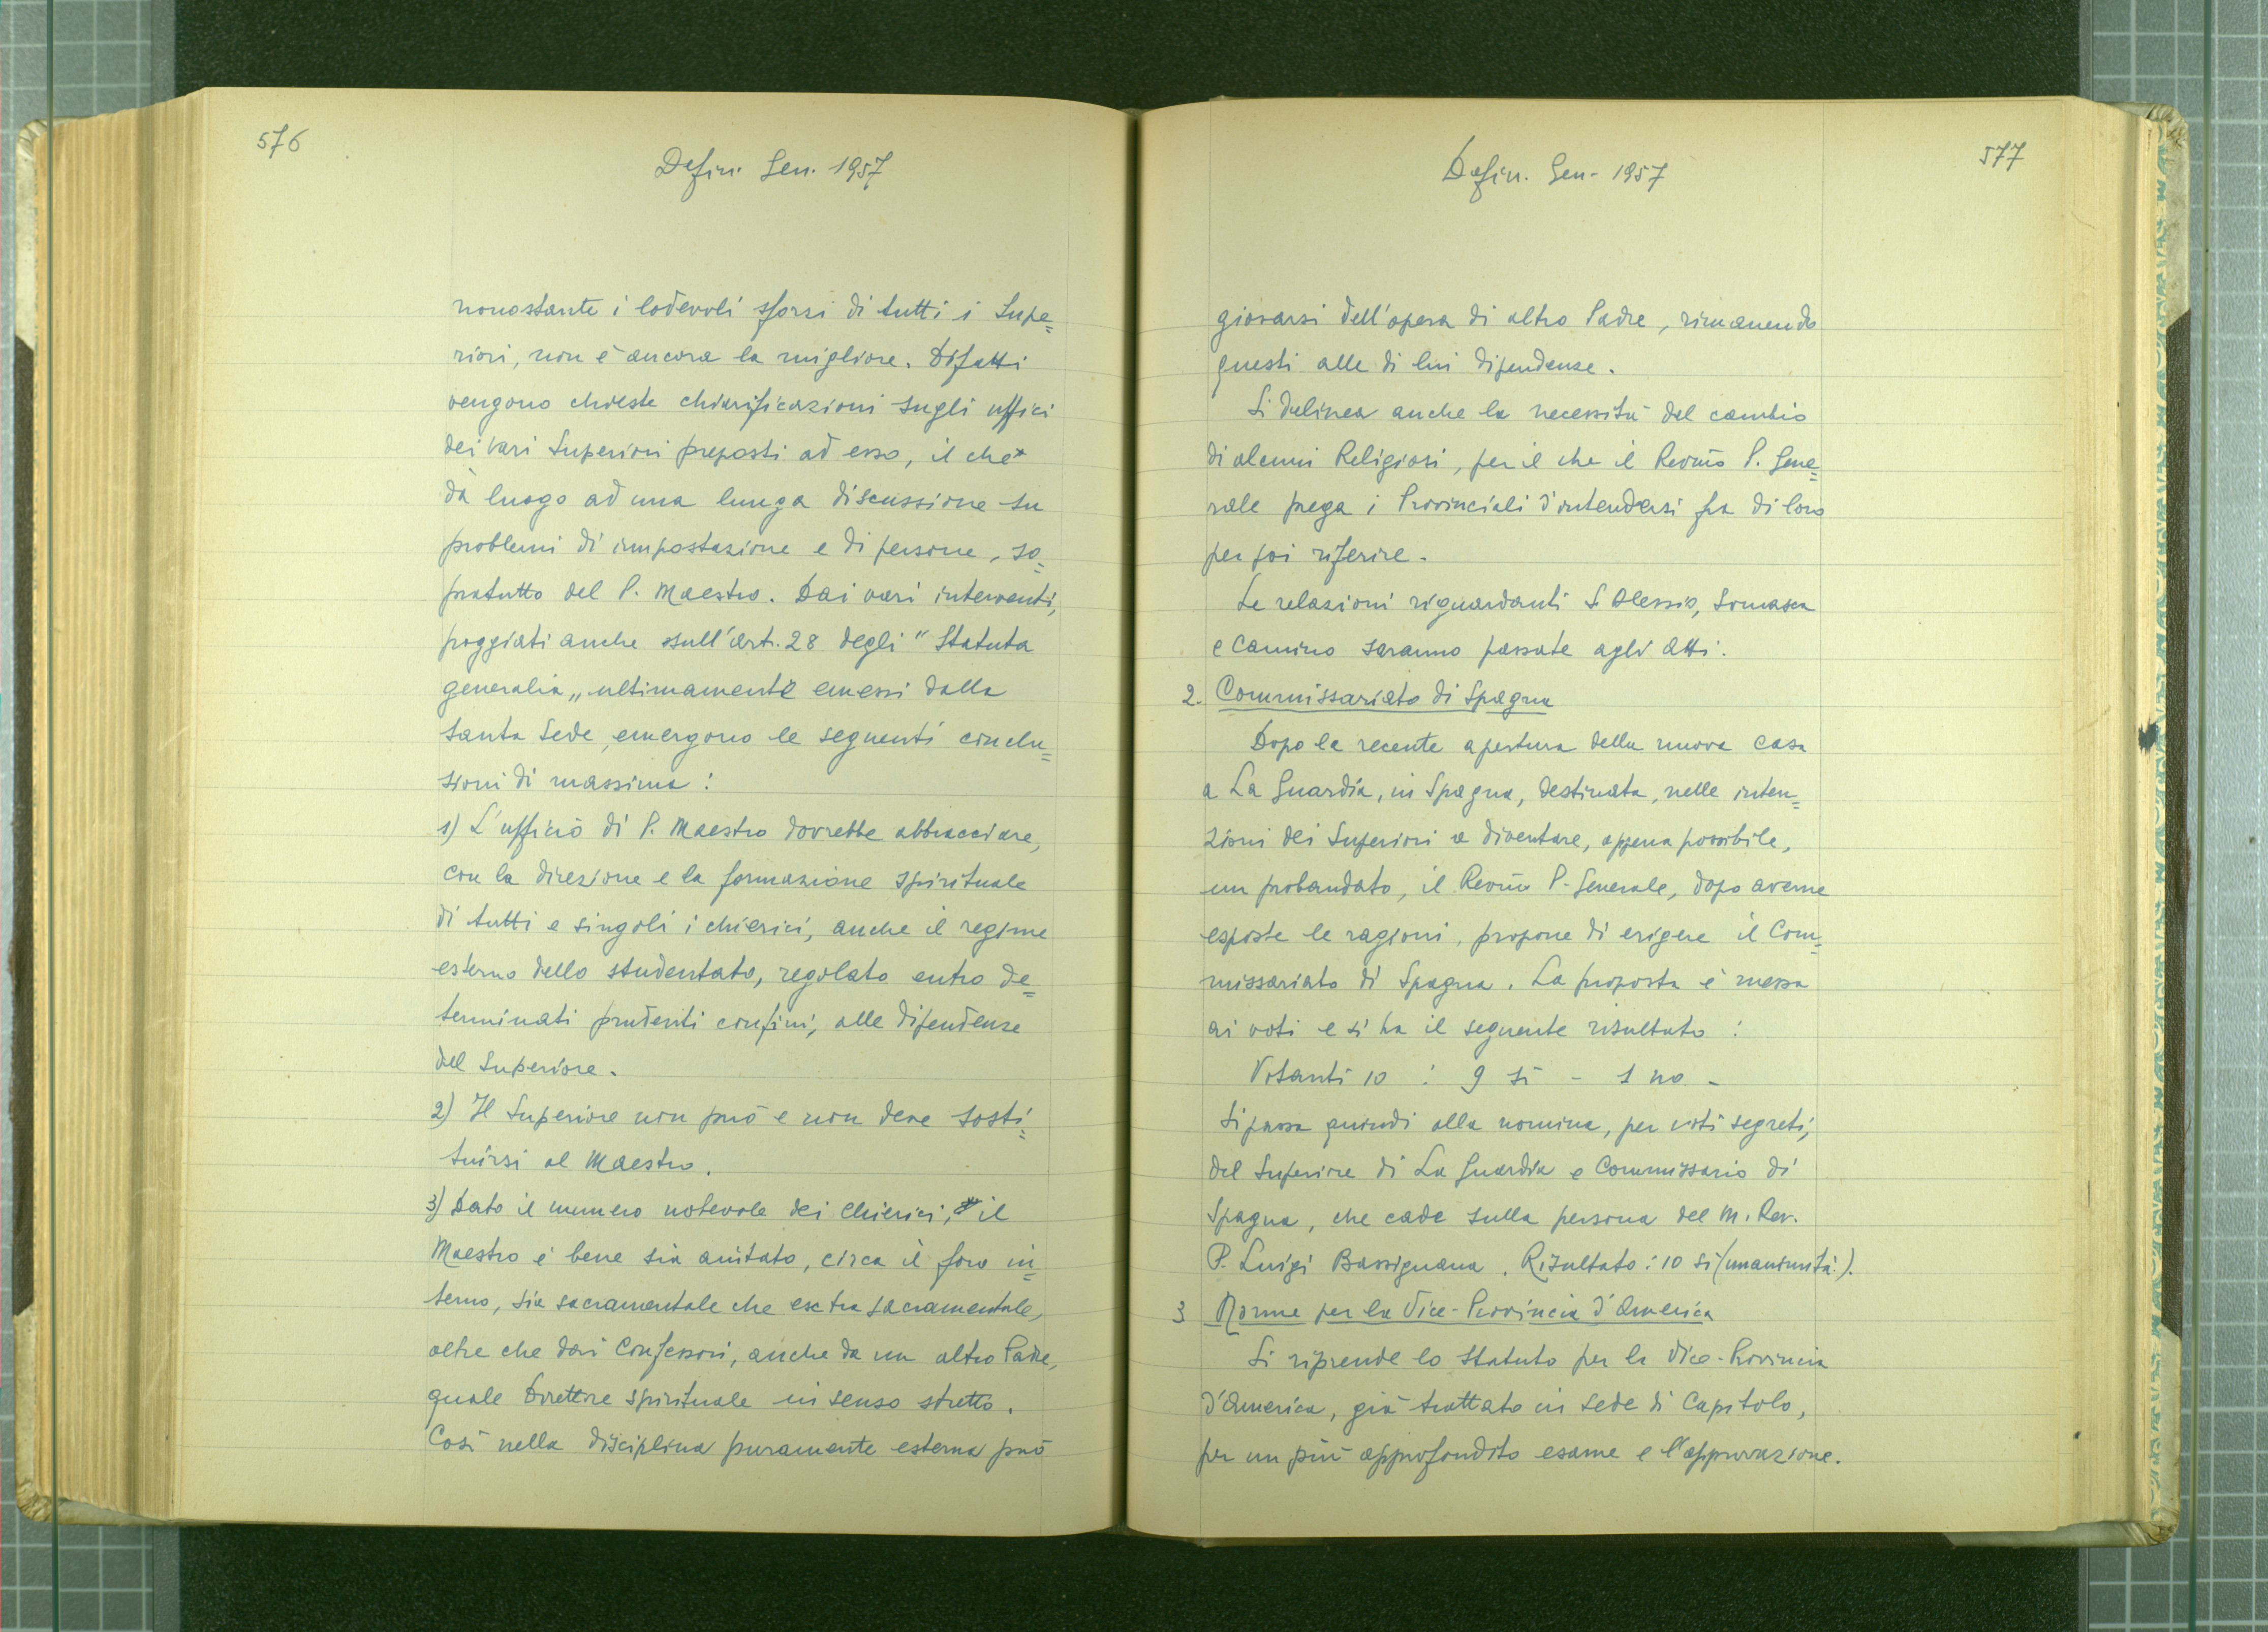 576
Defin. Gen. 1957
nonostante i lodevoli sforzi di tutti i Supe=
riori, non è ancora la migliore. Difatti
vengono chieste chiarificazioni sugli uffici
dei vari Superiori preposti ad esso, il che
dà luogo ad una lunga discussione su
problemi di impostazione e di persone, so=
pratutto del P. Maestro. Dai vari interventi,
poggiati anche sull'art. 28 degli "Statuta
generalia" ultimamente emessi dalla
Santa Sede, emergono le seguenti conclu=
sioni di massima:
1) L'ufficio di P. Maestro dovrebbe abbracciare,
con la direzione e la formazione spirituale
di tutti e singoli i chierici, anche il regime
esterno dello studentato, regolato entro de=
terminati prudenti confini, alle dipendenze
del Superiore.
2) Il Superiore non può e non deve sosti=
tuirsi al Maestro.
3) Dato il numero notevole dei Chierici, il
Maestro è bene sia aiutato, circa il foro in=
terno, sia sacramentale che extra sacramentale,
oltre che dai Confessori, anche da un altro Padre,
quale Direttore spirituale in senso stretto.
Così nella disciplina puramente esterna può
Defin. Gen. 1957
577
giovarsi dell'opera di altro Padre, rimanendo
questi alle di lui dipendenze.
Si delinea anche la necessità del cambio
di alcuni Religiosi, per il che il Revmo P. Gene=
rale prega i Provinciali d'intendersi fra di loro
per poi riferire.
Le relazioni riguardanti S. Alessio, Somasca
e Camino saranno passate agli Atti.
2. Commissariato di Spagna
Dopo la recente apertura della nuova casa
a La Guardia, in Spagna, destinata, nelle inten=
zioni dei Superiori a diventare, appena possibile,
un probandato, il Revmo P. Generale, dopo averne
esposte le ragioni, propone di erigere il Com=
missariato di Spagna. La proposta è messa
ai voti e si ha il seguente risultato:
Votanti 10 : 9 sì - 1 no -
Si passa quindi alla nomina, per voti segreti,
del Superiore di La Guardia e Commissario di
Spagna, che cade sulla persona del M. Rev.
P. Luigi Bassignana. Risultato: 10 sì (unanimità).
3 Norme per la Vice-Provincia d'America
Si riprende lo Statuto per la Vice-Provincia
d'America, già trattato in sede di Capitolo,
per un più approfondito esame e l'approvazione.